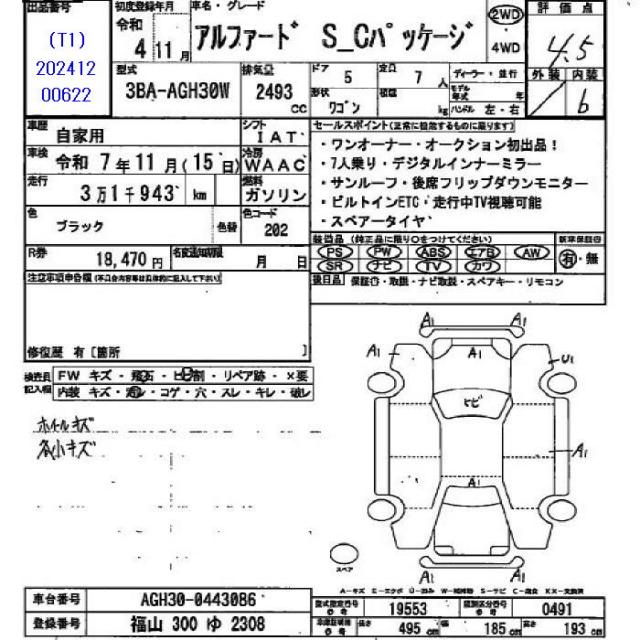 出品番号
(T1)
202412
00622
初度登録年月
令和
4年11月
車名・グレード
アルファード S_Cパッケージ
2WD
4WD
評価点
4.5
外装 内装
6
型式
3BA-AGH30W
排気量
2493
cc
ドア
5
定員
7人
形状
ワゴン
積載
kg
ディーラー・並行
モデル年式
年
ハンドル 左・右
車歴
自家用
シフト
IAT
車検
令和 7年11月(15日)
冷房
WAAC
走行
3万1千943
km
燃料
ガソリン
色
ブラック
色替
色コード
202
R券
18,470 円
名変通知期限
月 日
セールスポイント(正常に機能するものに限ります)
・ワンオーナー・オークション初出品!
・7人乗り・デジタルインナーミラー
・サンルーフ・後席フリップダウンモニター
・ビルトインETC・走行中TV視聴可能
・スペアータイヤ
装備品 (純正品に限り○をつけてください)
PS PW ABS エアB AW
SR ナビ TV カワ
新車保証書
有・無
後日品 保証書・取説・ナビ取説・スペアキー・リモコン
注意事項申告欄(不具合内容等は具体的に記入して下さい)
修復歴 有 [箇所 ]
検査員記入欄
FW キズ・飛石・ヒビ割・リペア跡・×要
内装 キズ・汚レ・コゲ・穴・スレ・キレ・破レ
ホイルキズ
各小キズ
A1
A1
A1
A1
U1
ヒビ
A1
A1
A1
A1
スペア
A-キズ E-エクボ U-凹み W-補修跡 S-サビ C-腐食 XX-交換済
車台番号
AGH30-0443086
登録番号
福山 300 ゆ 2308
型式指定番号
19553
類別区分番号
0491
長さ
495 cm
幅
185 cm
高さ
193 cm